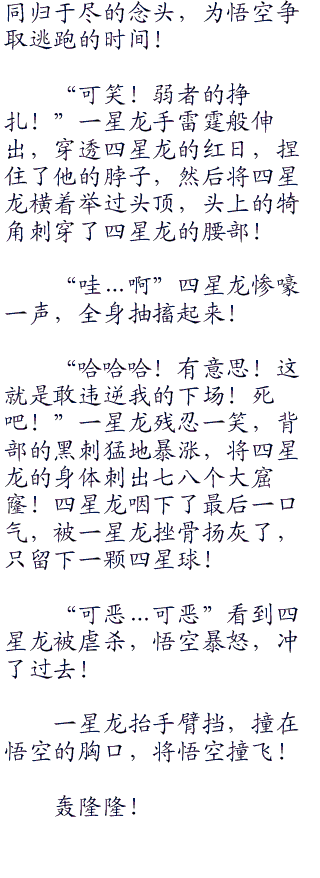 同归于尽的念头，为悟空争
取逃跑的时间！
“可笑！弱者的挣
扎！”一星龙手雷霆般伸
出，穿透四星龙的红日，捏
住了他的脖子，然后将四星
龙横着举过头顶，头上的犄
角刺穿了四星龙的腰部！
“哇…啊”四星龙惨嚎
一声，全身抽搐起来！
“哈哈哈！有意思！这
就是敢违逆我的下场！死
吧！”一星龙残忍一笑，背
部的黑刺猛地暴涨，将四星
龙的身体刺出七八个大窟
窿！四星龙咽下了最后一口
气，被一星龙挫骨扬灰了，
只留下一颗四星球！
“可恶…可恶”看到四
星龙被虐杀，悟空暴怒，冲
了过去！
一星龙抬手臂挡，撞在
悟空的胸口，将悟空撞飞！
轰隆隆！